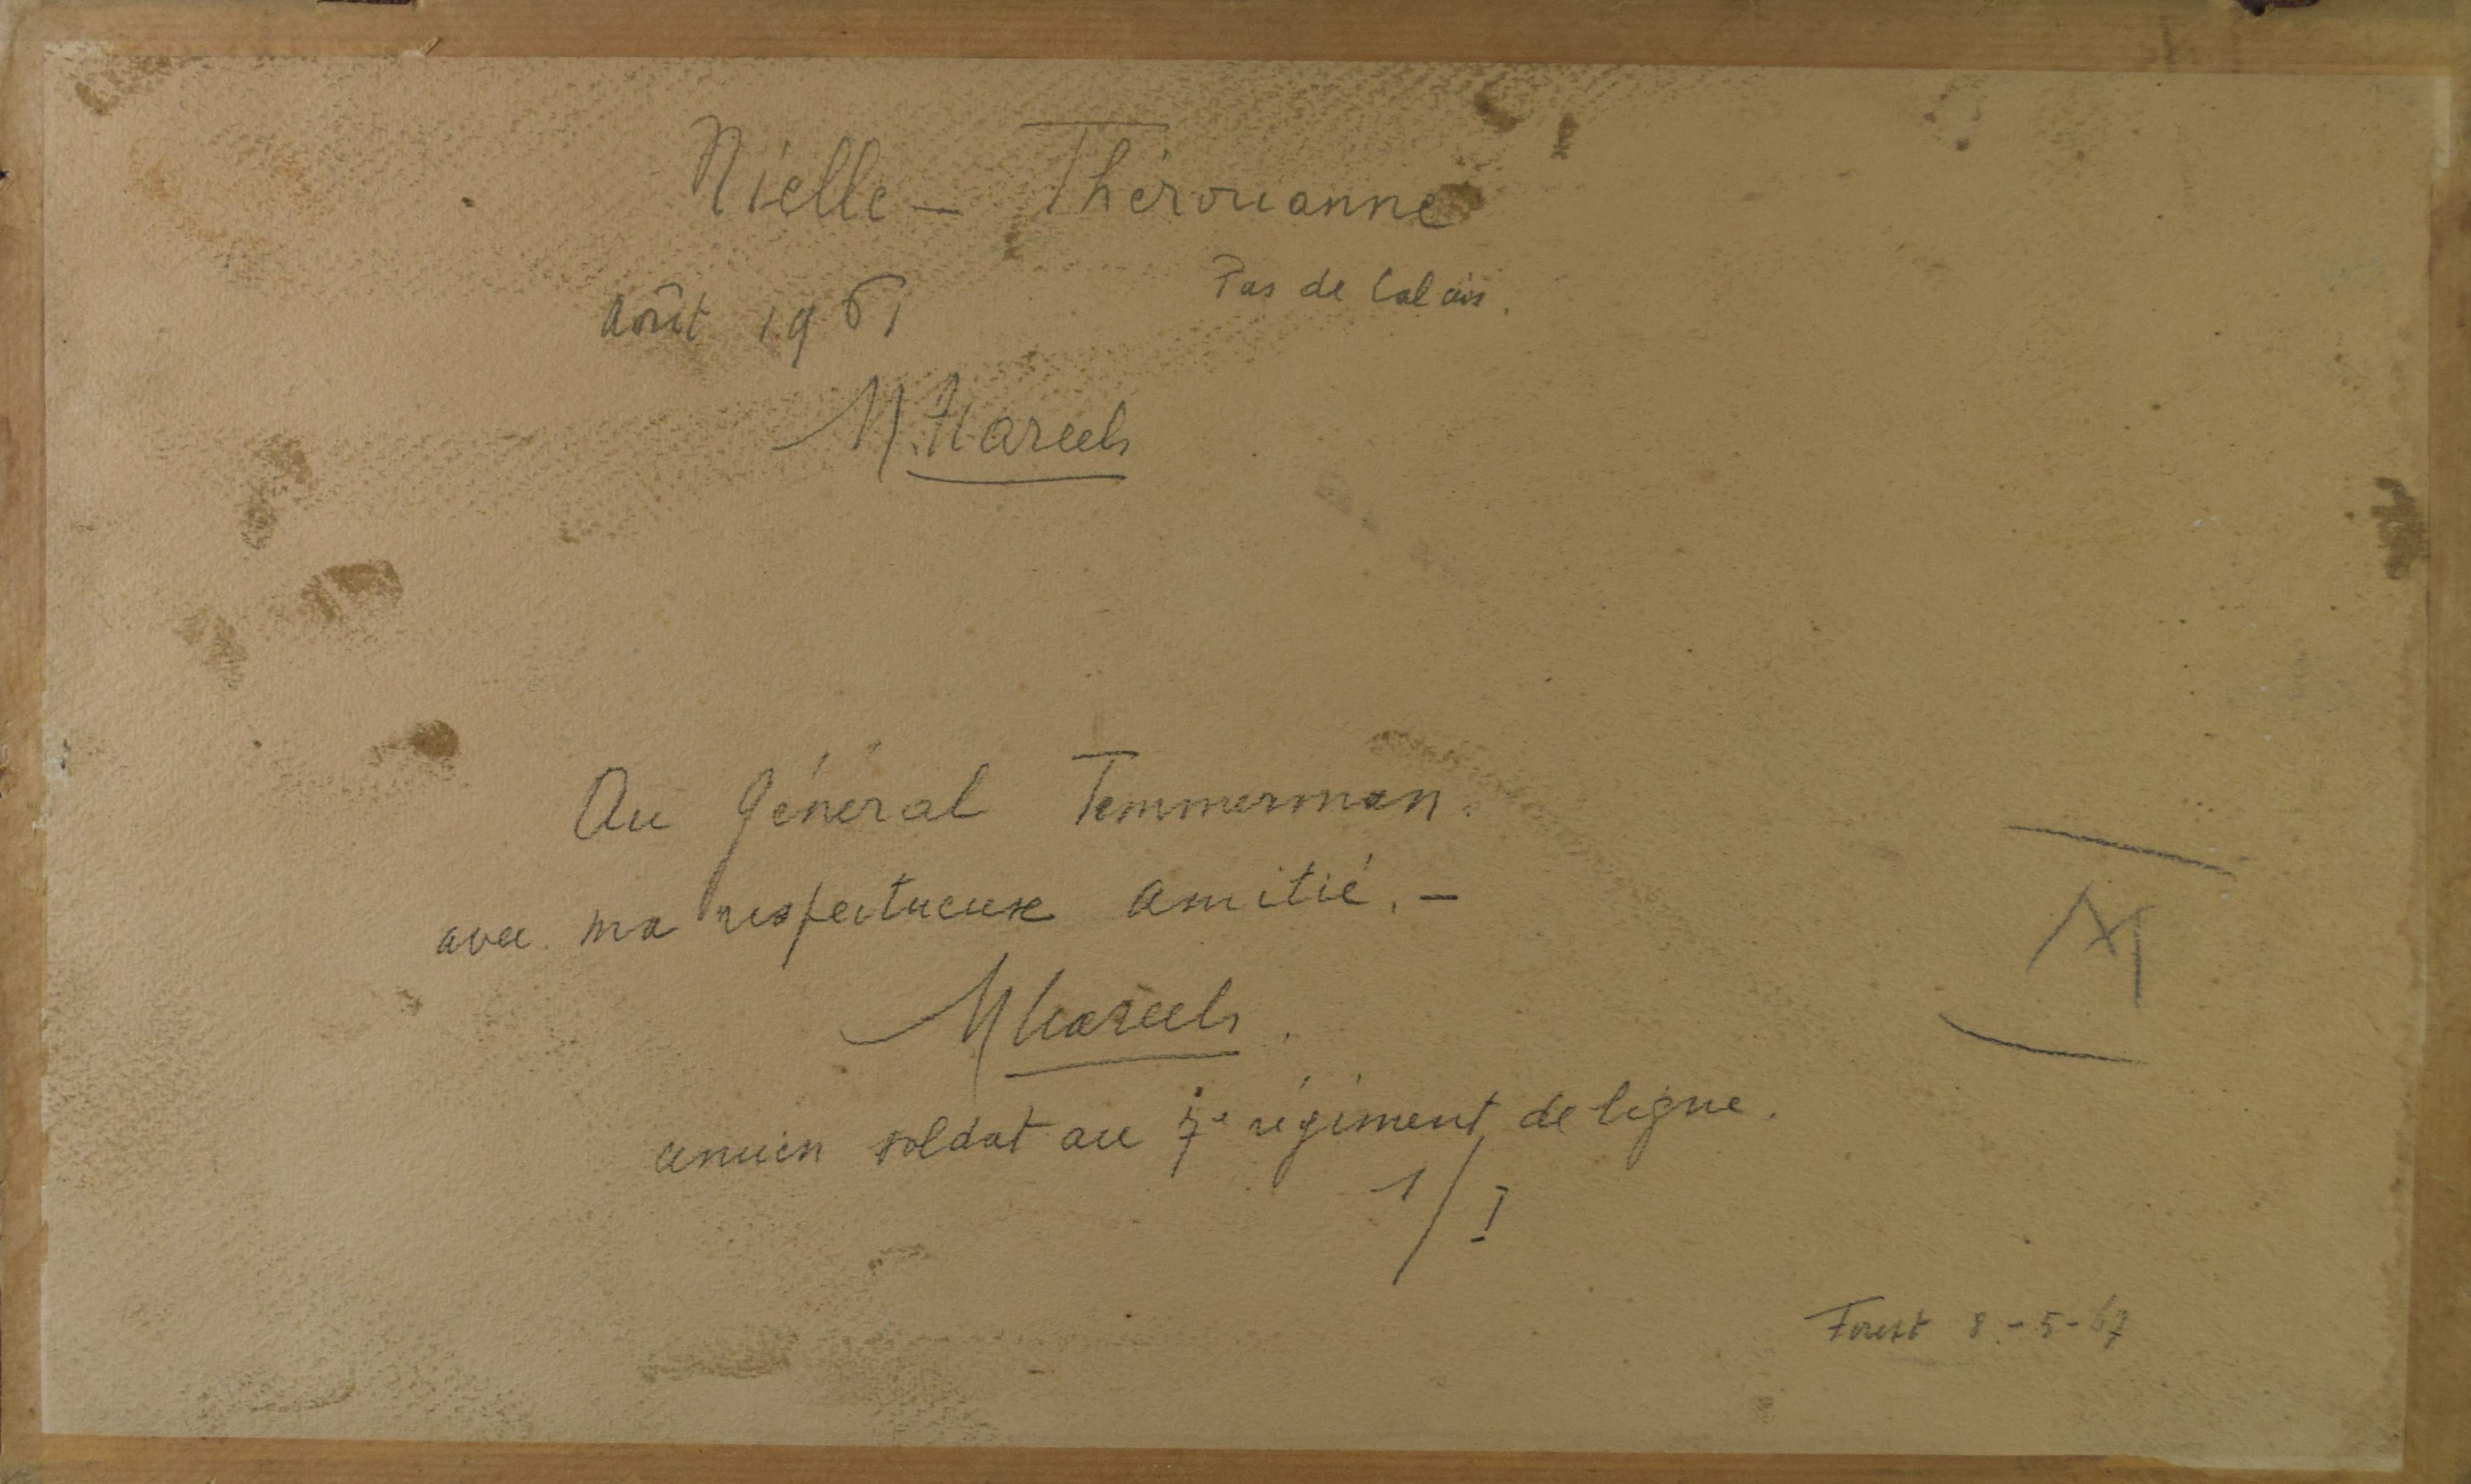 Nielle - Thérouanne
Pas de Calais.
Août 1961
M. Hareels
Au Général Temmerman.
avec ma respectueuse amitié. -
M Hareels.
ancien soldat au 7e régiment de ligne.
1/I
M
Forest 8-5-67